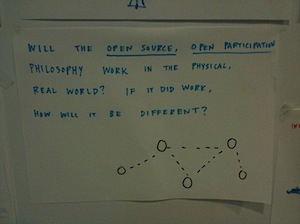 WILL THE OPEN SOURCE, OPEN PARTICIPATION
PHILOSOPHY WORK IN THE PHYSICAL,
REAL WORLD? IF IT DID WORK,
HOW WILL IT BE DIFFERENT?